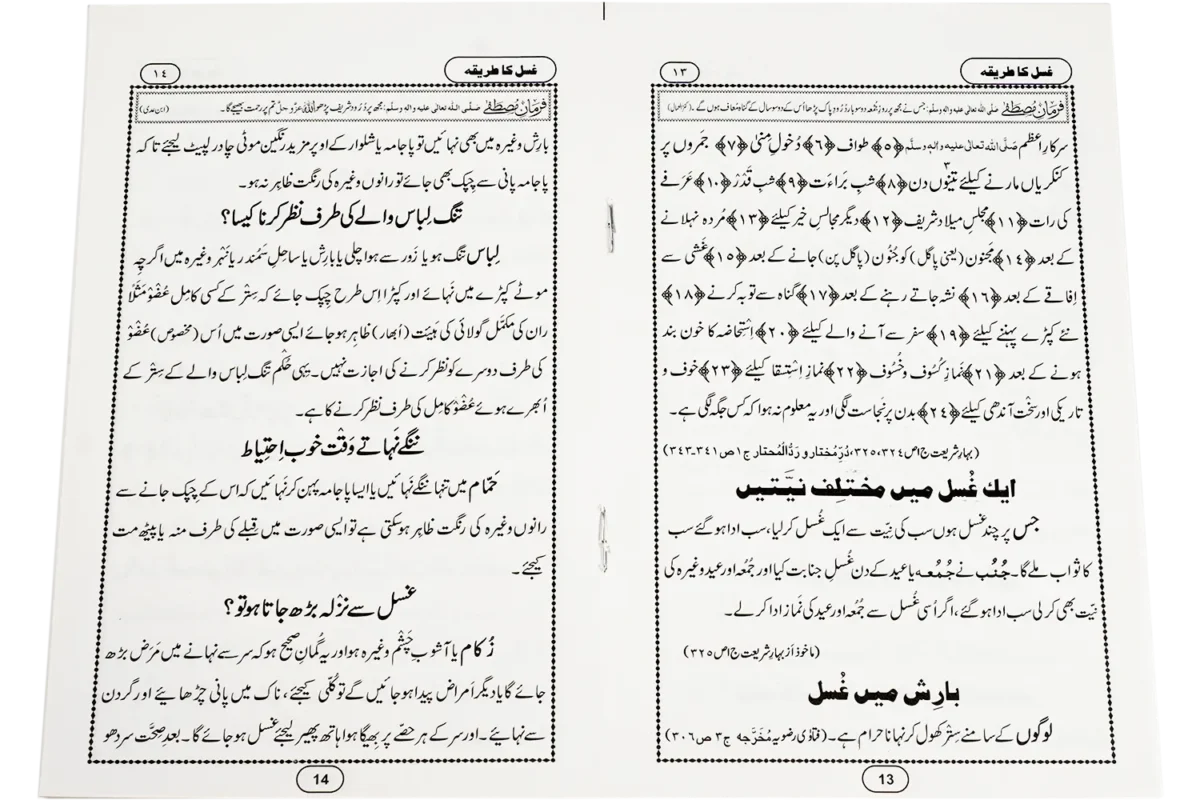 غسل کا طریقہ
۱۳
فرمانِ مصطفٰے صلی اللہ تعالیٰ علیہ والہ وسلم: جس نے مجھ پر روزِ جمعہ دو سو بار دُرُودِ پاک پڑھا اُس کے دو سو سال کے گناہ معاف ہوں گے۔ (کنز العمال)
سرکارِ اعظم صَلَّی اللہ تعالیٰ علیہ واٰلہٖ وسلَّم ﴿۵﴾ طواف ﴿۶﴾ دُخولِ مِنیٰ ﴿۷﴾ جَمروں پر
کنکریاں مارنے کیلئے تینوں دن ﴿۸﴾ شبِ بَراءَت ﴿۹﴾ شبِ قَدْر ﴿۱۰﴾ عَرَفے
کی رات ﴿۱۱﴾ مجلسِ میلاد شریف ﴿۱۲﴾ دیگر مجالسِ خیر کیلئے ﴿۱۳﴾ مُردہ نہلانے
کے بعد ﴿۱۴﴾ مجنون (یعنی پاگل) کو جُنُون (پاگل پن) جانے کے بعد ﴿۱۵﴾ غَشی سے
اِفاقے کے بعد ﴿۱۶﴾ نشہ جاتے رہنے کے بعد ﴿۱۷﴾ گناہ سے توبہ کرنے ﴿۱۸﴾
نئے کپڑے پہننے کیلئے ﴿۱۹﴾ سفر سے آنے والے کیلئے ﴿۲۰﴾ اِسْتِحاضہ کا خون بند
ہونے کے بعد ﴿۲۱﴾ نَمازِ کُسُوف و خُسُوف ﴿۲۲﴾ نمازِ اِسْتِسقا کیلئے ﴿۲۳﴾ خوف و
تاریکی اور سخْت آندھی کیلئے ﴿۲۴﴾ بدن پر نَجاست لگی اور یہ معلوم نہ ہوا کہ کس جگہ لگی ہے۔
(بہارِ شریعت ج۱ص۳۲۴،۳۲۵، دُرِّمُختار و رَدُّالْمُحتار ج۱ص۳۴۱-۳۴۳)
ایک غُسل میں مختلِف نیّتیں
جس پر چند غسل ہوں سب کی نیّت سے ایک غُسل کر لیا، سب ادا ہو گئے سب
کا ثواب ملے گا۔ جُنُب نے جُمُعہ یا عید کے دن غُسلِ جنابت کیا اور جُمُعہ اور عید وغیرہ کی
نیّت بھی کر لی سب ادا ہو گئے، اگر اُسی غُسل سے جُمُعہ اور عید کی نَماز ادا کر لے۔
(ماخوذ اَز بہارِ شریعت ج۱ص۳۲۵)
بارِش میں غُسل
لوگوں کے سامنے سِتْر کھول کر نہانا حرام ہے۔ (فتاوٰی رضویہ مُخَرَّجہ ج۳ص۳۰۶)
13
غسل کا طریقہ
۱٤
فرمانِ مصطفٰے صلی اللہ تعالیٰ علیہ والہ وسلم: مجھ پر دُرُود شریف پڑھو اللہ عزوجل تم پر رحمت بھیجے گا۔ (ابن عدی)
بارِش وغیرہ میں بھی نہائیں تو پاجامہ یا شلوار کے اوپر مزید رنگین موٹی چادر لپیٹ لیجئے تاکہ
پاجامہ پانی سے چِپک بھی جائے تو رانوں وغیرہ کی رنگت ظاہِر نہ ہو۔
تنگ لِباس والے کی طرف نظر کرنا کیسا؟
لِباس تنگ ہو یا زور سے ہوا چلی یا بارِش یا ساحلِ سَمُندر یا نَہْر وغیرہ میں اگرچِہ
موٹے کپڑے میں نَہائے اور کپڑا اِس طرح چِپک جائے کہ سِتْر کے کسی کامِل عُضْوْ مَثَلًا
ران کی مکمَّل گولائی کی ہَیئَت (اُبھار) ظاہِر ہو جائے ایسی صورت میں اُس (مخصوص) عُضْوْ
کی طرف دوسرے کو نظر کرنے کی اجازت نہیں۔ یہی حُکْم تنگ لِباس والے کے سِتْر کے
اُبھرے ہوئے عُضْوْ کامِل کی طرف نظر کرنے کا ہے۔
ننگے نَہاتے وَقْت خوب اِحْتِیاط
حَمّام میں تنہا ننگے نَہائیں یا ایسا پاجامہ پہن کر نَہائیں کہ اس کے چِپک جانے سے
رانوں وغیرہ کی رنگت ظاہِر ہو سکتی ہے تو ایسی صورت میں قبلے کی طرف منہ یا پیٹھ مت
کیجئے۔
غسل سے نَزْلہ بڑھ جاتا ہو تو؟
زُکام یا آشوبِ چَشْم وغیرہ ہو اور یہ گُمانِ صحیح ہو کہ سر سے نہانے میں مَرَض بڑھ
جائے گا یا دیگر اَمراض پیدا ہو جائیں گے تو کُلّی کیجئے، ناک میں پانی چڑھائیے اور گردن
سے نہائیے۔ اور سر کے ہر حصّے پر بھیگا ہوا ہاتھ پھیر لیجئے غسل ہو جائے گا۔ بعدِ صحّت سر دھو
14